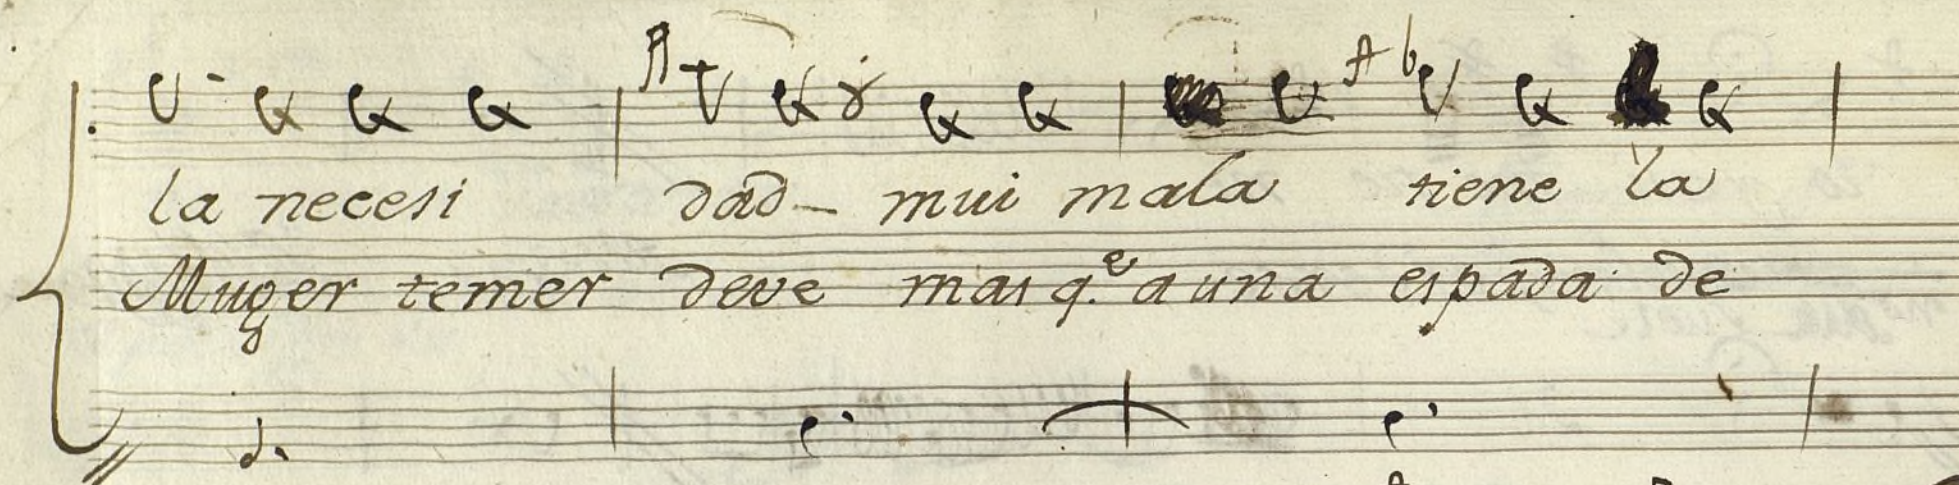 la necesi dad- mui mala tiene la
Muger temer deve mas q.e a una espada de